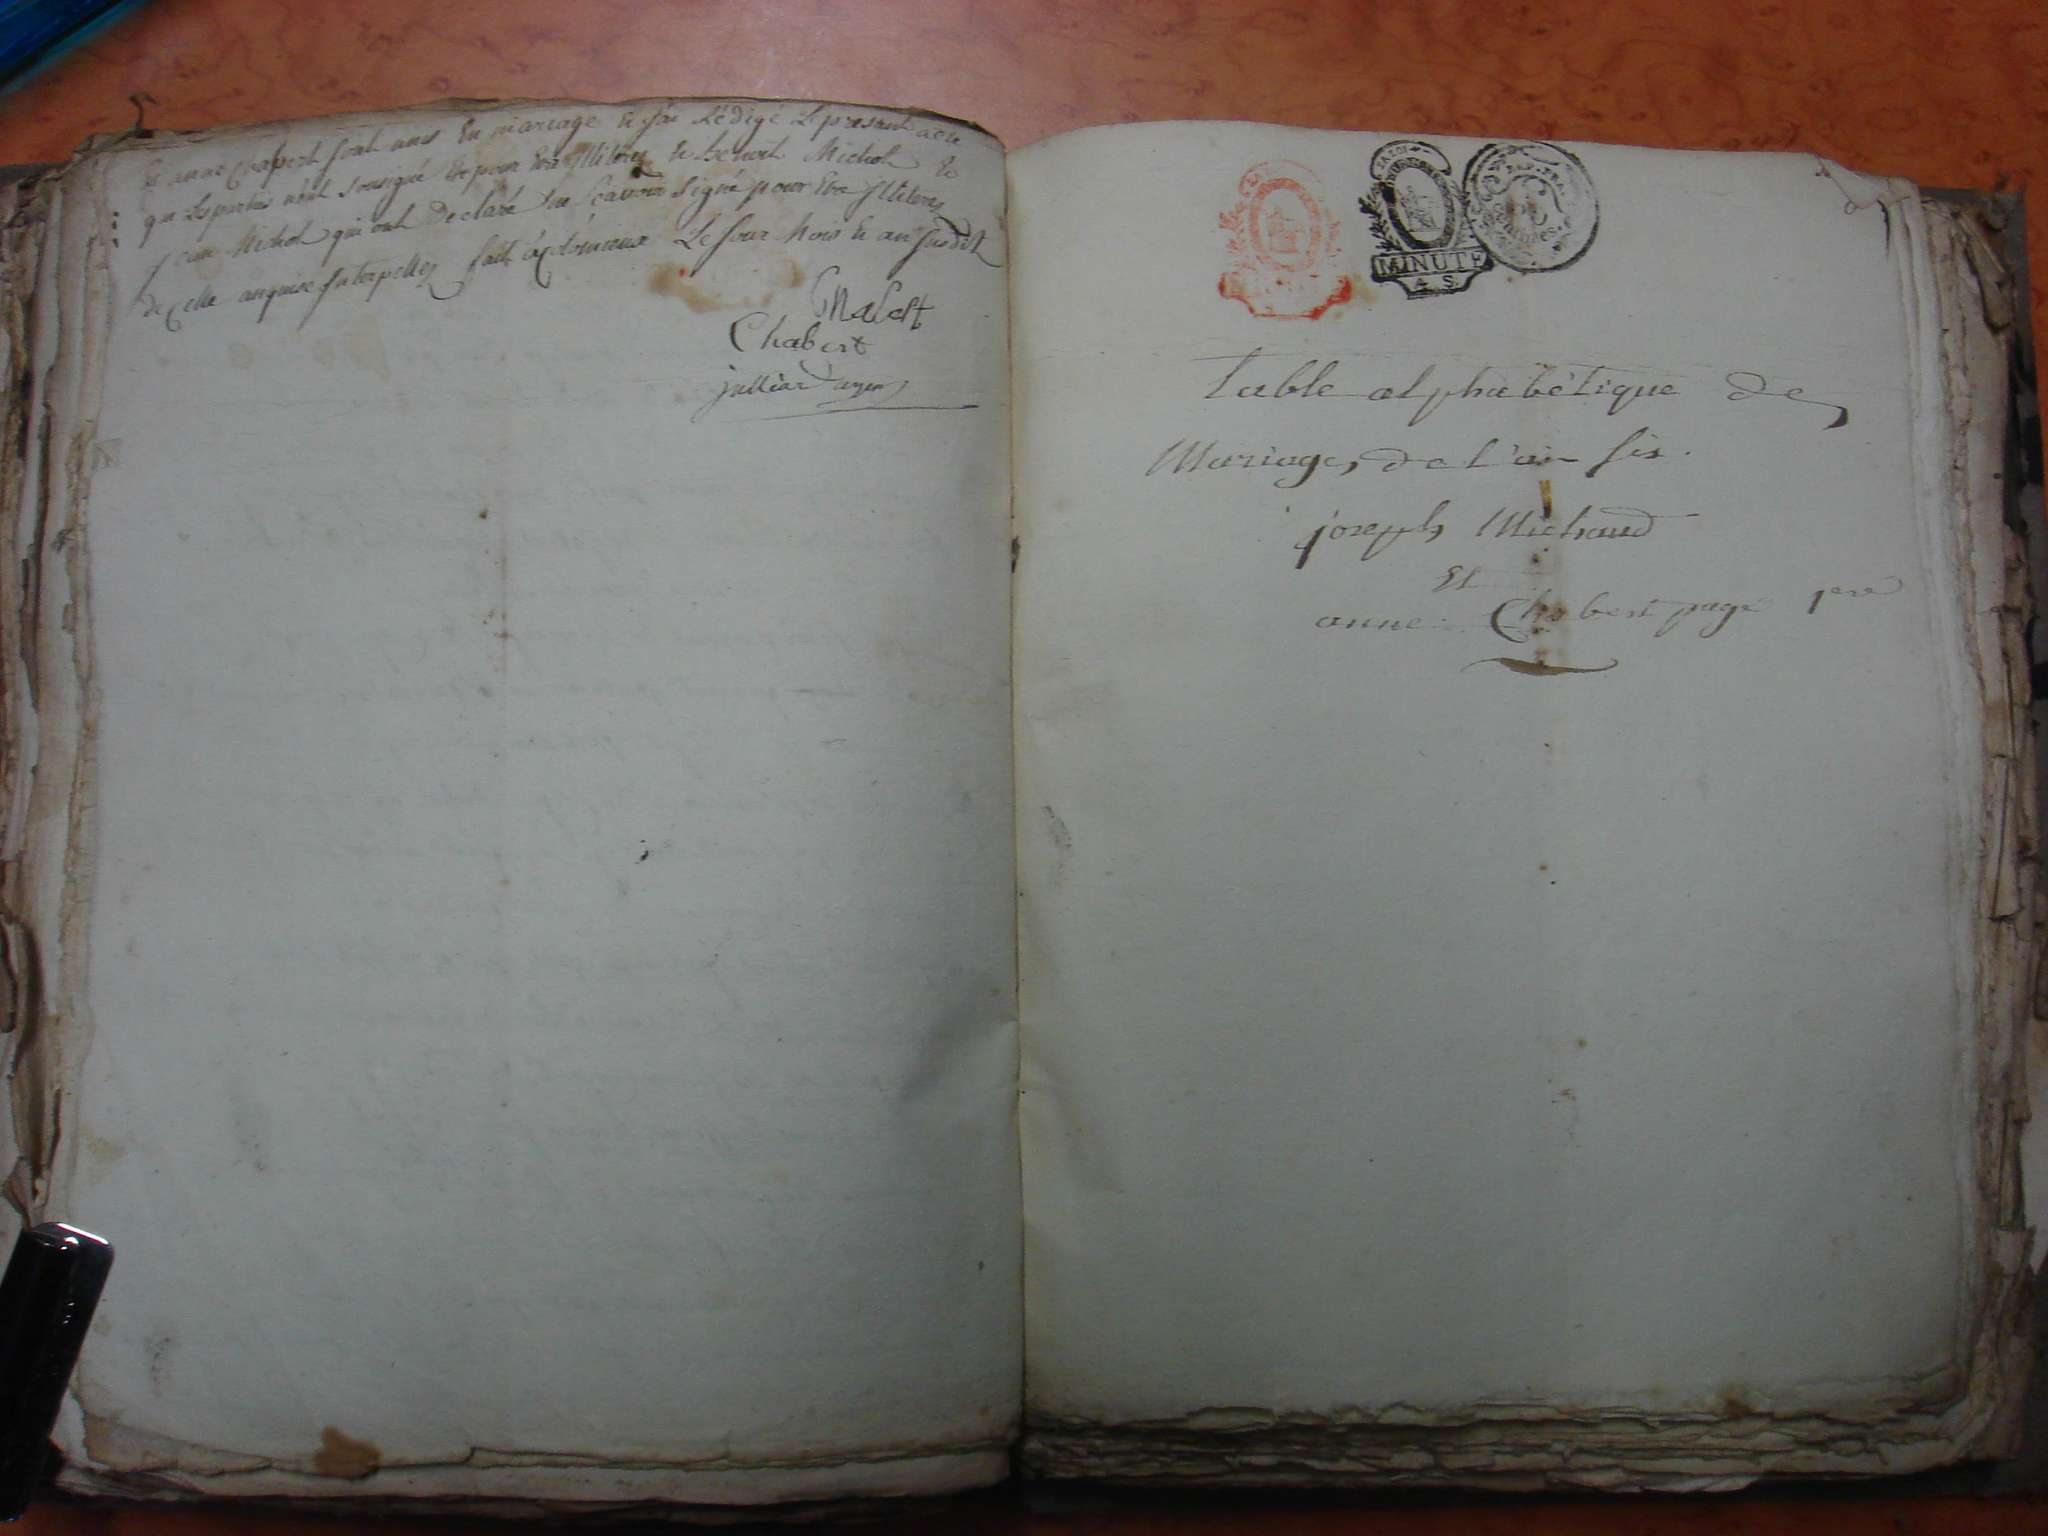 Et anne Chabert sont unis En mariage Et j'ai Rédigé Le présent acte
que Les parties n'ont soussigné Et pour Etre Illiteres Et benoit Michol Et
jean Michol qui ont declaré Ne Scavoir Signé pour Etre Illiteres
de Celle enquise Interpelles fait Le jour Mois Et an Susdit
Chabert
Chabert
julliard
LA LOI
MINUTE
4 S.
Table alphabétique de
Mariages de l'an six.
joseph Michaud
Et
anne Chabert page 1ere